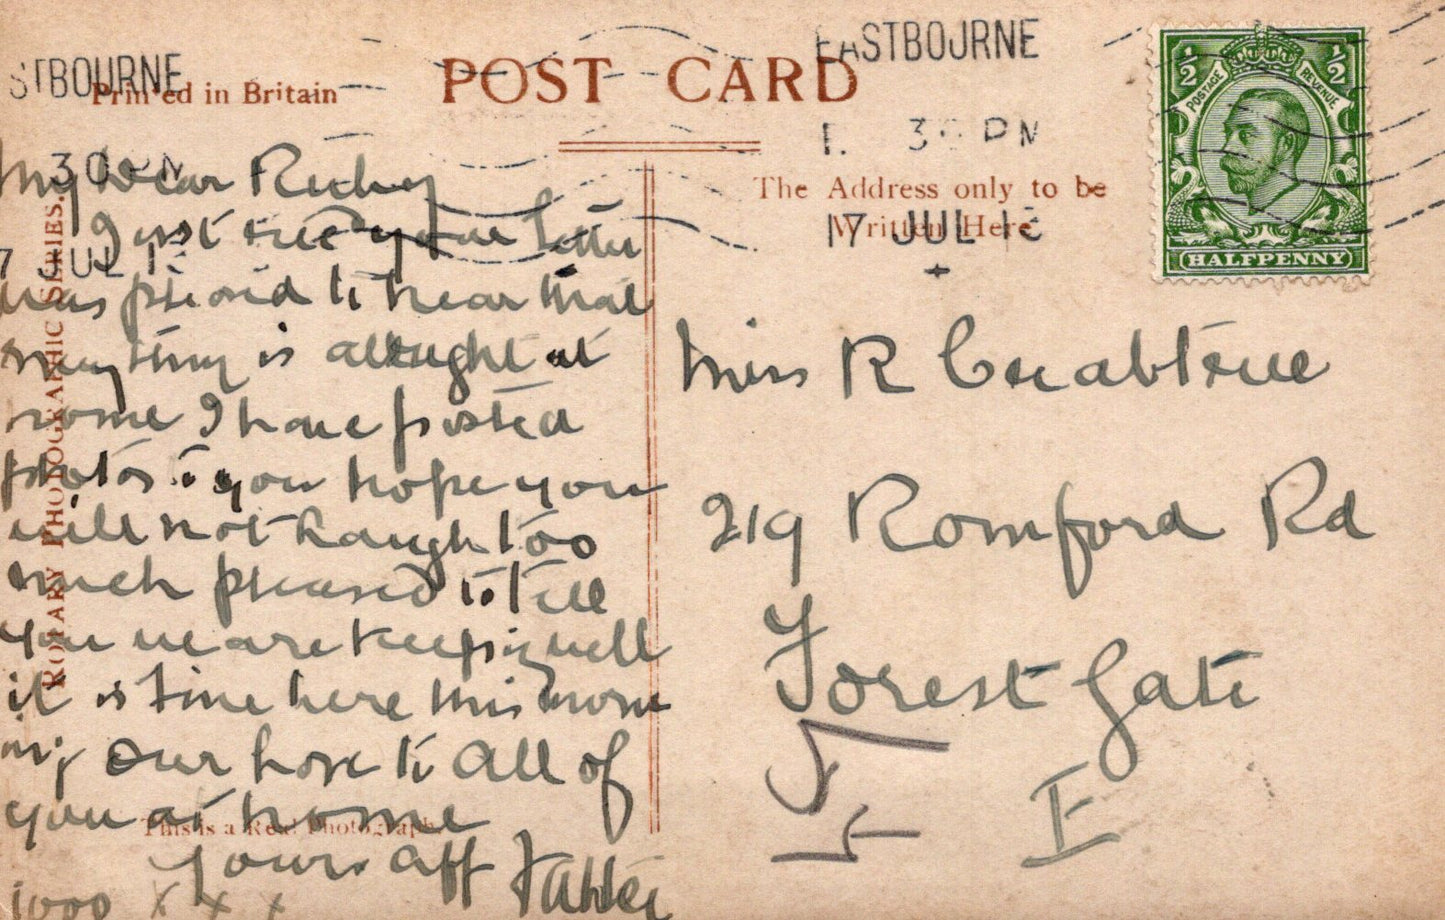 EASTBOURNE
STBOURNE
Printed in Britain
POST CARD
1. 30 PM
30 PM
The Address only to be
Written Here
17 JUL 13
7 JUL 1
½ ½
POSTAGE REVENUE
HALFPENNY
ROTARY PHOTOGRAPHIC SERIES.
My Dear Ruby
Just recd your Letter
was pleased to hear that
everything is allright at
home I have posted
photos to you hope you
will not laugh too
much pleased to tell
you we are keeping well
it is fine here this morn
ing our love to all of
you at home
Yours aff Father
1000 x x x
This is a Real Photograph
Miss R Crabtree
219 Romford Rd
Forest Gate
E